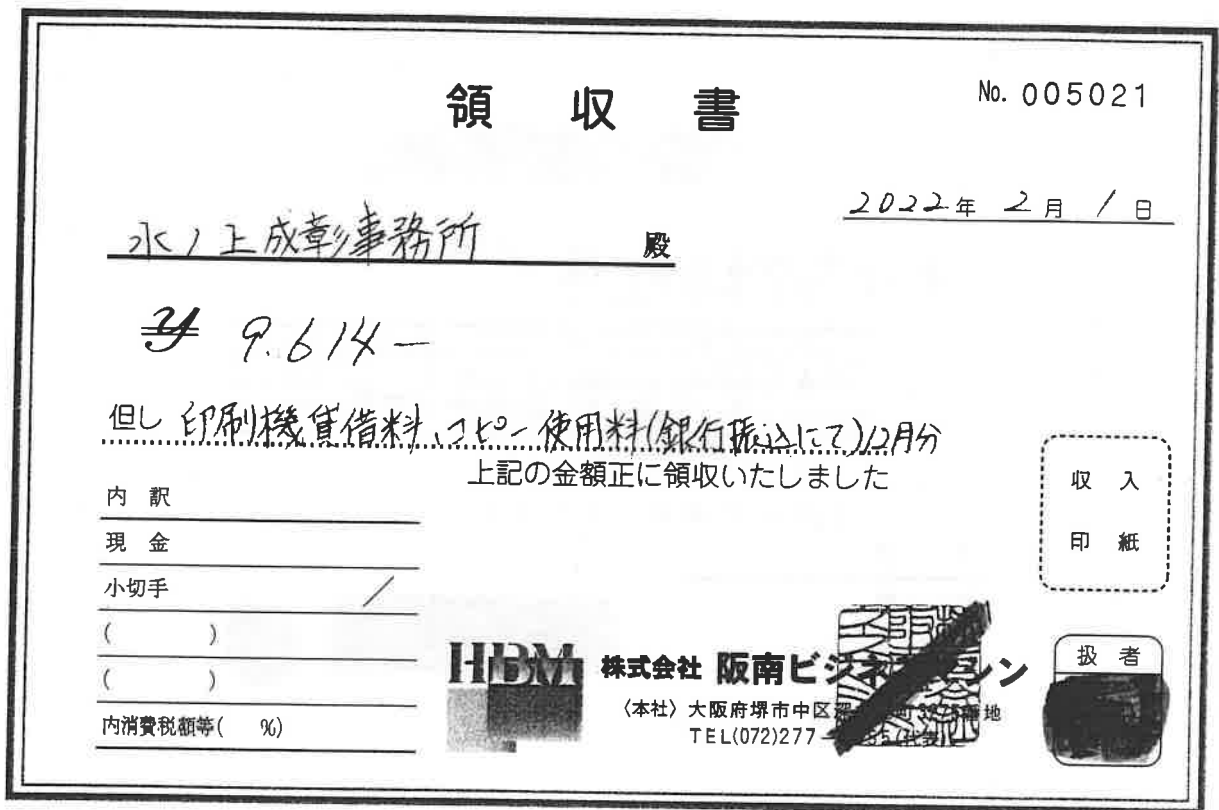 領 収 書
No. 005021
2022年 2月 1日
水ノ上成彰事務所 殿
¥ 9.614-
但し 印刷機賃借料、コピー使用料(銀行振込にて)12月分
上記の金額正に領収いたしました
収 入
印 紙
内 訳
現 金
小切手
( )
( )
内消費税額等( %)
HBM
株式会社 阪南ビジネスマシン
〈本社〉大阪府堺市中区
TEL(072)277-
扱 者